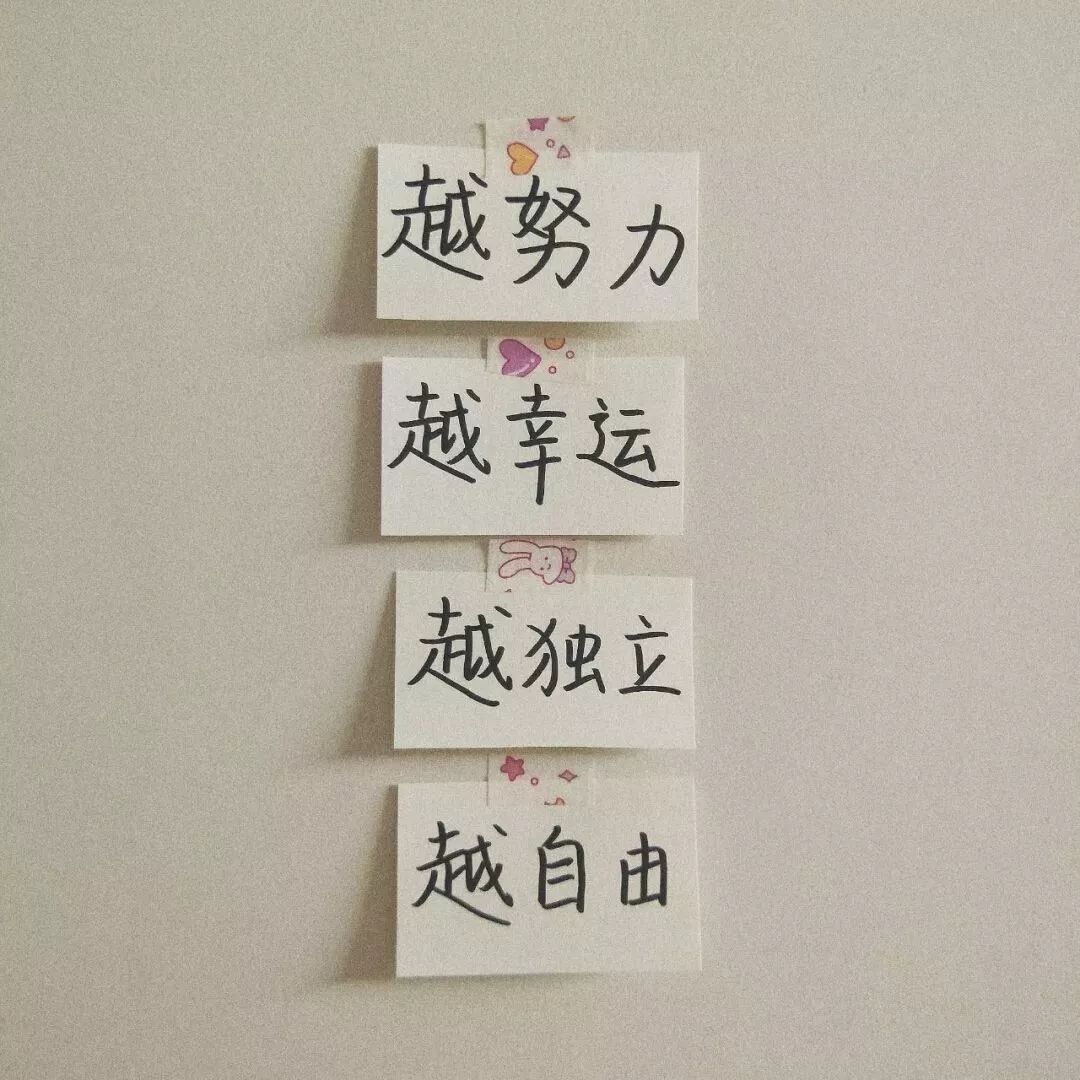 越努力
越幸运
越独立
越自由